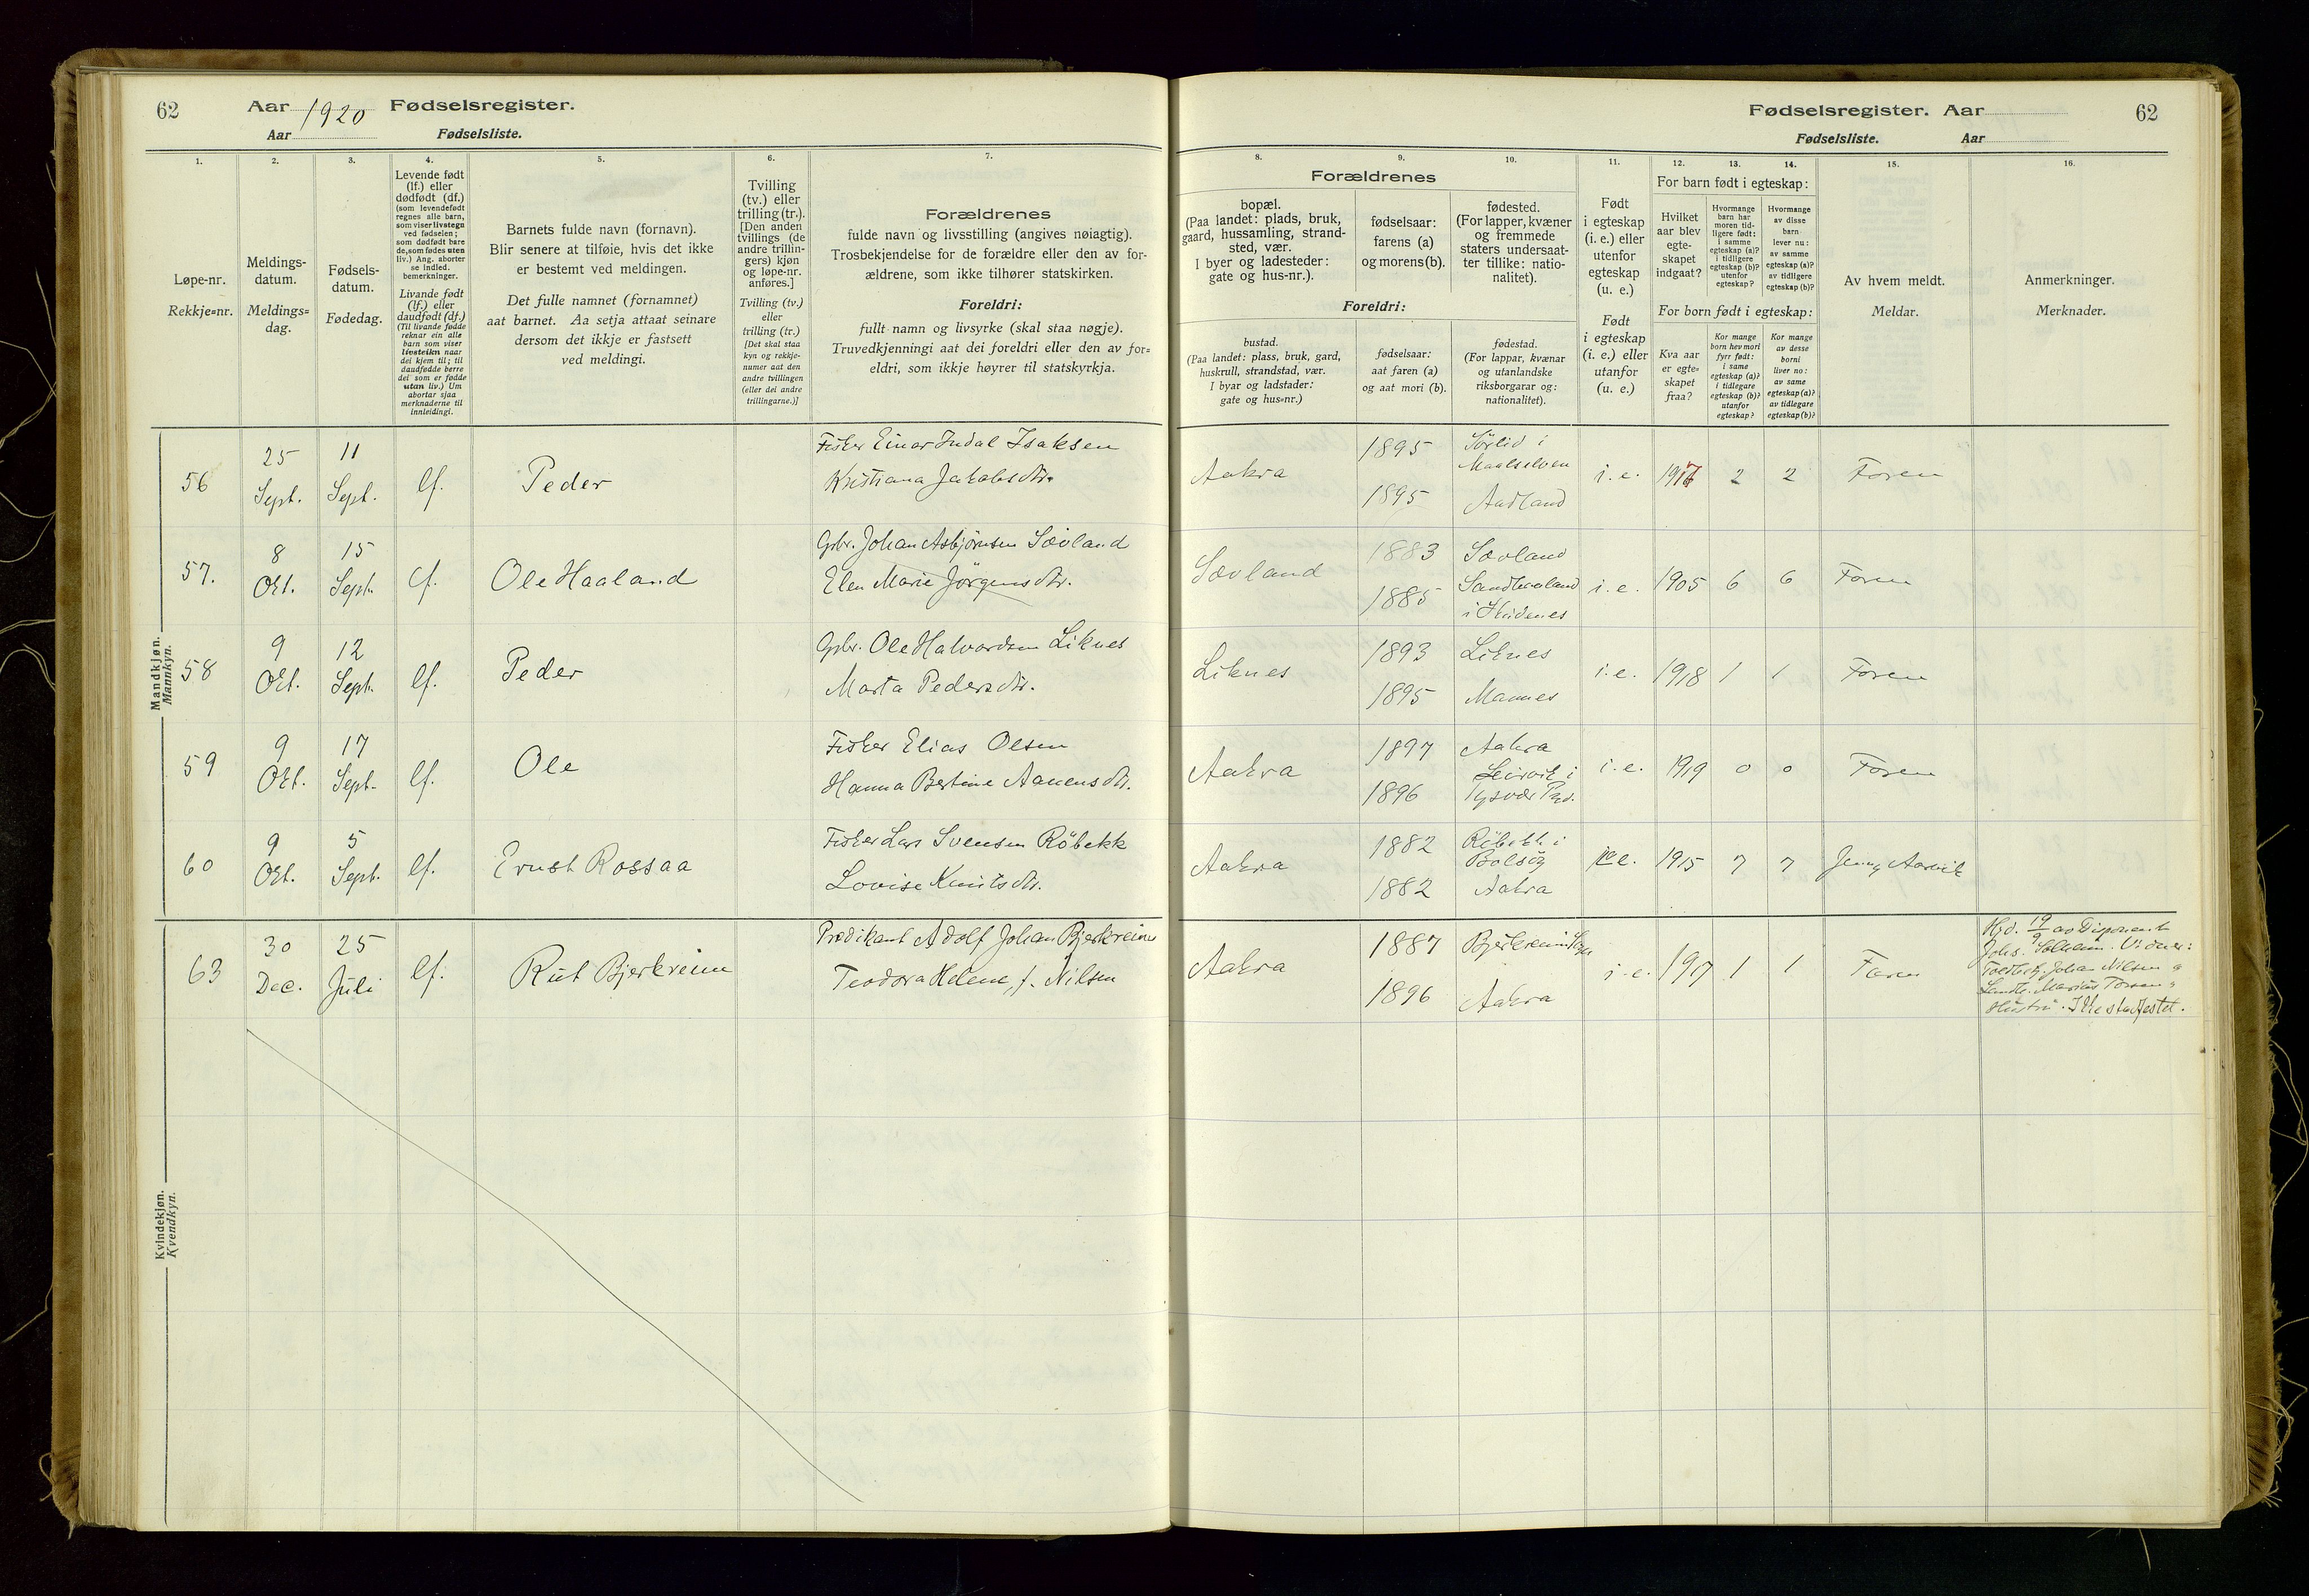 62 Aar 1920 Fødselsregister.
Aar Fødselsliste.
Fødselsregister. Aar 62
Fødselsliste. Aar
1.
Løpe-nr.
Rekkje=nr.
2.
Meldings-
datum.
Meldings=
dag.
3.
Fødsels-
datum.
Fødedag.
4.
Levende født
(lf.) eller
dødfødt (df.)
(som levendefødt
regnes alle barn,
som viser livstegn
ved fødselen;
som dødfødt bare
de, som fødes uten
liv.) Ang. aborter
se indled.
bemerkninger.
Livande født
(lf.) eller
daudfødt (df.)
(Til livande fødde
reknar ein alle
barn som viser
livsteikn naar
dei kjem til; til
daudfødde berre
dei som er fødde
utan liv.) Um
abortar sjaa
merknaderne til
innleidingi.
5.
Barnets fulde navn (fornavn).
Blir senere at tilføie, hvis det ikke
er bestemt ved meldingen.
Det fulle namnet (fornamnet)
aat barnet. Aa setja attaat seinare
dersom det ikkje er fastsett
ved meldingi.
6.
Tvilling
(tv.) eller
trilling (tr.).
[Den anden
tvillings (de
andre trillin-
gers) kjøn
og løpe-nr.
anføres.]
Tvilling (tv.)
eller
trilling (tr.)
[Det skal staa
kyn og rekkje-
numer aat den
andre tvillingen
(eller dei andre
trillingarne.)]
7.
Forældrenes
fulde navn og livsstilling (angives nøiagtig).
Trosbekjendelse for de forældre eller den av for-
ældrene, som ikke tilhører statskirken.
Foreldri:
fullt namn og livsyrke (skal staa nøgje).
Truvedkjenningi aat dei foreldri eller den av for=
eldri, som ikkje høyrer til statskyrkja.
Forældrenes
8.
bopæl.
(Paa landet: plads, bruk,
gaard, hussamling, strand-
sted, vær.
I byer og ladesteder:
gate og hus-nr.).
9.
fødselsaar:
farens (a)
og morens (b).
10.
fødested.
(For lapper, kvæner
og fremmede
staters undersaat-
ter tillike: natio-
nalitet).
Foreldri:
bustad.
(Paa landet: plass, bruk, gard,
huskrull, strandstad, vær.
I byar og ladstader:
gate og hus=nr.)
fødselsaar:
aat faren (a)
og aat mori (b).
fødestad.
(For lappar, kvænar
og utanlandske
riksborgarar og:
nationalitet).
11.
Født
i egteskap
(i. e.) eller
utenfor
egteskap
(u. e.)
Født
i egteskap
(i. e.) eller
utanfor
(u. e.)
For barn født i egteskap:
12.
Hvilket
aar blev
egte-
skapet
indgaat?
13.
Hvormange
barn har
moren tid-
ligere født:
i samme
egteskap (a)?
i tidligere
egteskap (b)?
utenfor
egteskap?
14.
Hvormange
av disse
barn
lever nu:
av samme
egteskap (a)?
av tidligere
egteskap (b)?
For born født i egteskap:
Kva aar
er egte=
skapet
fraa?
Kor mange
born hev mori
fyrr født:
i same
egteskap (a)?
i tidlegare
egteskap (b)?
utanfor
egteskap?
Kor mange
av desse
borni
liver no:
av same
egteskap (a)?
av tidlegare
egteskap (b)?
15.
Av hvem meldt.
Meldar.
16.
Anmerkninger.
Merknader.
Mandkjøn.
Mannkyn.
56 25 Sept. 11 Sept. lf. Peder
Fisker Einar Indal Isaksen
Kristiana Jakobsdtr.
Aakra 1895 1895
Sørlid i
Maalselven
Aadland
i. e. 1917 2 2 Faren
57. 8 Okt. 15 Sept. lf. Ole Haaland
Gbr. Johan Asbjørnsen Sævland
Elen Marie Jørgensdtr.
Sævland 1883 1885
Sævland
Sandhaaland
i Skudenes
i. e. 1905 6 6 Faren
58 9 Okt. 12 Sept. lf. Peder
Gbr. Ole Halvordsen Liknes
Marta Pedersdtr.
Liknes 1893 1895
Liknes
Mannes
i. e. 1918 1 1 Faren
59 9 Okt. 17 Sept. lf. Ole
Fisker Elias Olsen
Hanna Bertine Aanensdtr.
Aakra 1897 1896
Aakra
Leirvik i
Tysvær Psd.
i. e. 1919 0 0 Faren
60 9 Okt. 5 Sept. lf. Ernst Rossaa
Fisker Lars Svensen Röbekk
Lovise Knutsdtr.
Aakra 1882 1882
Röbekk i
Bolsøy
Aakra
i. e. 1915 7 7 Jenny Aarvik
Kvindekjøn.
Kvendkyn.
63 30 Dec. 25 Juli lf. Rut Bjerkreim
Prædikant Adolf Johan Bjerkreim
Teodora Helene, f. Nilsen
Aakra 1887 1896
Bjerkreim
Aakra
i. e. 1917 1 1 Faren
Hjd. 19/9 av Disponent
Johs. Solheim. Vidner:
Johan Nilsen og
Landh. Marius Torsen og
Hustru. Ikke stadfestet.